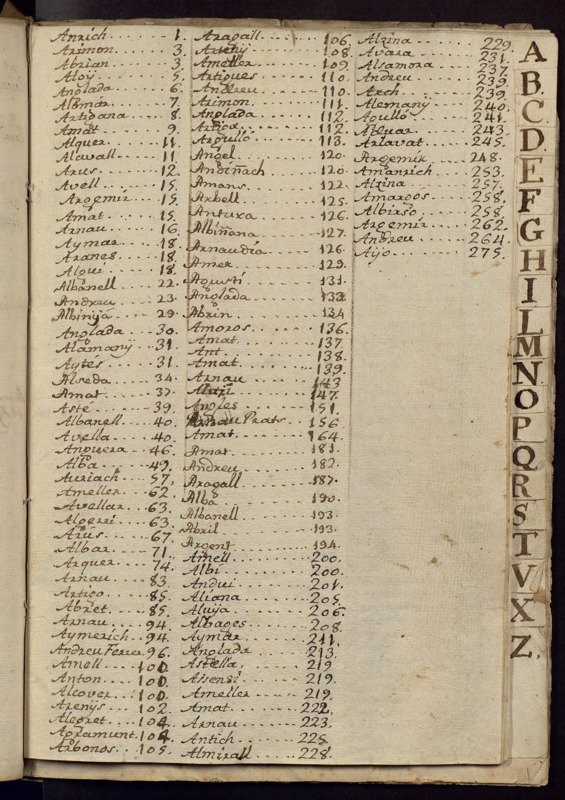 Anrich 1.
Arimon 3.
Abrian 3.
Aloÿ 5.
Anglada 6.
Albmar 7.
Artigana 8.
Amat 9.
Alquer 11.
Alavall 11.
Arus 12.
Avell 15.
Argemir 15.
Amat 15.
Arnau 16.
Aymar 18.
Aranes 18.
Algui 18.
Albanell 22.
Andreu 23.
Albinÿa 29.
Anglada 30.
Alamanÿ 31.
Aytés 31.
Alseda 34.
Amat 37.
Asté 39.
Albanell 40.
Avella 40.
Anguera 46.
Alba 49.
Auriach 57.
Ameller 62.
Avellar 63.
Algerri 63.
Arús 67.
Albar 71.
Arquer 74.
Arnau 83.
Artigo 85.
Abret 85.
Arnau 94.
Aymerich 94.
Andreu Ferrer 96.
Amell 100.
Anton 100.
Alcover 100.
Arenÿs 102.
Alegret 104.
Agramunt 104.
Arbonos 105.
Aragall 106.
Arsenÿ 108.
Ameller 109.
Artigues 110.
Andreu 110.
Arimon 111.
Anglada 112.
Artigor 112.
Argullo 113.
Angel 120.
Andiñach 120.
Amans 122.
Arbell 125.
Antuxa 126.
Albiñana 127.
Arnaudia 126.
Amer 129.
Agustí 131.
Anglada 132.
Abrin 134.
Amoros 136.
Amat 137.
Ant 138.
Amat 139.
Arnau 143
147.
Angles 151.
Prats 156
Amat 164.
Amat 181.
Andreu 182.
Aragall 187.
Alba 190.
Albanell 193.
Abril 193.
Argent 194.
Amell 200.
Albi 200.
Andui 201.
Aliona 205.
Aluÿa 206.
Albages 208.
Aymar 211.
Anglada 213.
Astella 219
Assensi 219.
Ameller 219.
Amat 222.
Arnau 223.
Antich 225.
Almirall 228.
Alzina 229.
Avara 231.
Alsamora 237.
Andreu 239.
Arch 239.
Alemanÿ 240.
Agulló 241.
Aluar 243.
Arlavat 245.
Argemir 248.
Amanrich 253.
Alzina 257.
Amargos 258.
Albirso 258.
Argemir 262.
Andreu 264.
Aijo 275.
A
B.
C.
D
E
F
G
H
I
L
M
N
O
P
Q
R
S
T
V
X
Z.